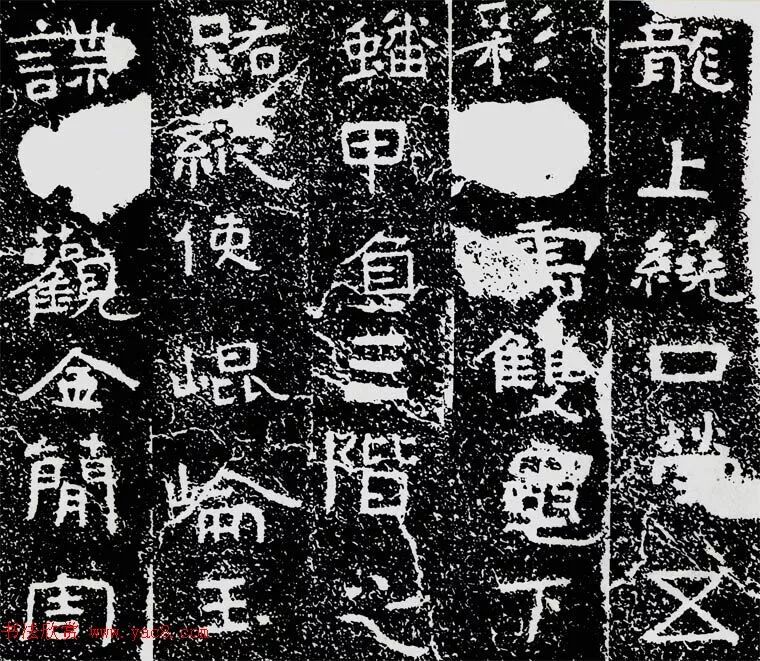 龍上繞口五
彩雙龜下
蟠甲負三階之
路縱使崐崘玉
諜觀金簡周
书法欣赏 www.yac8.com